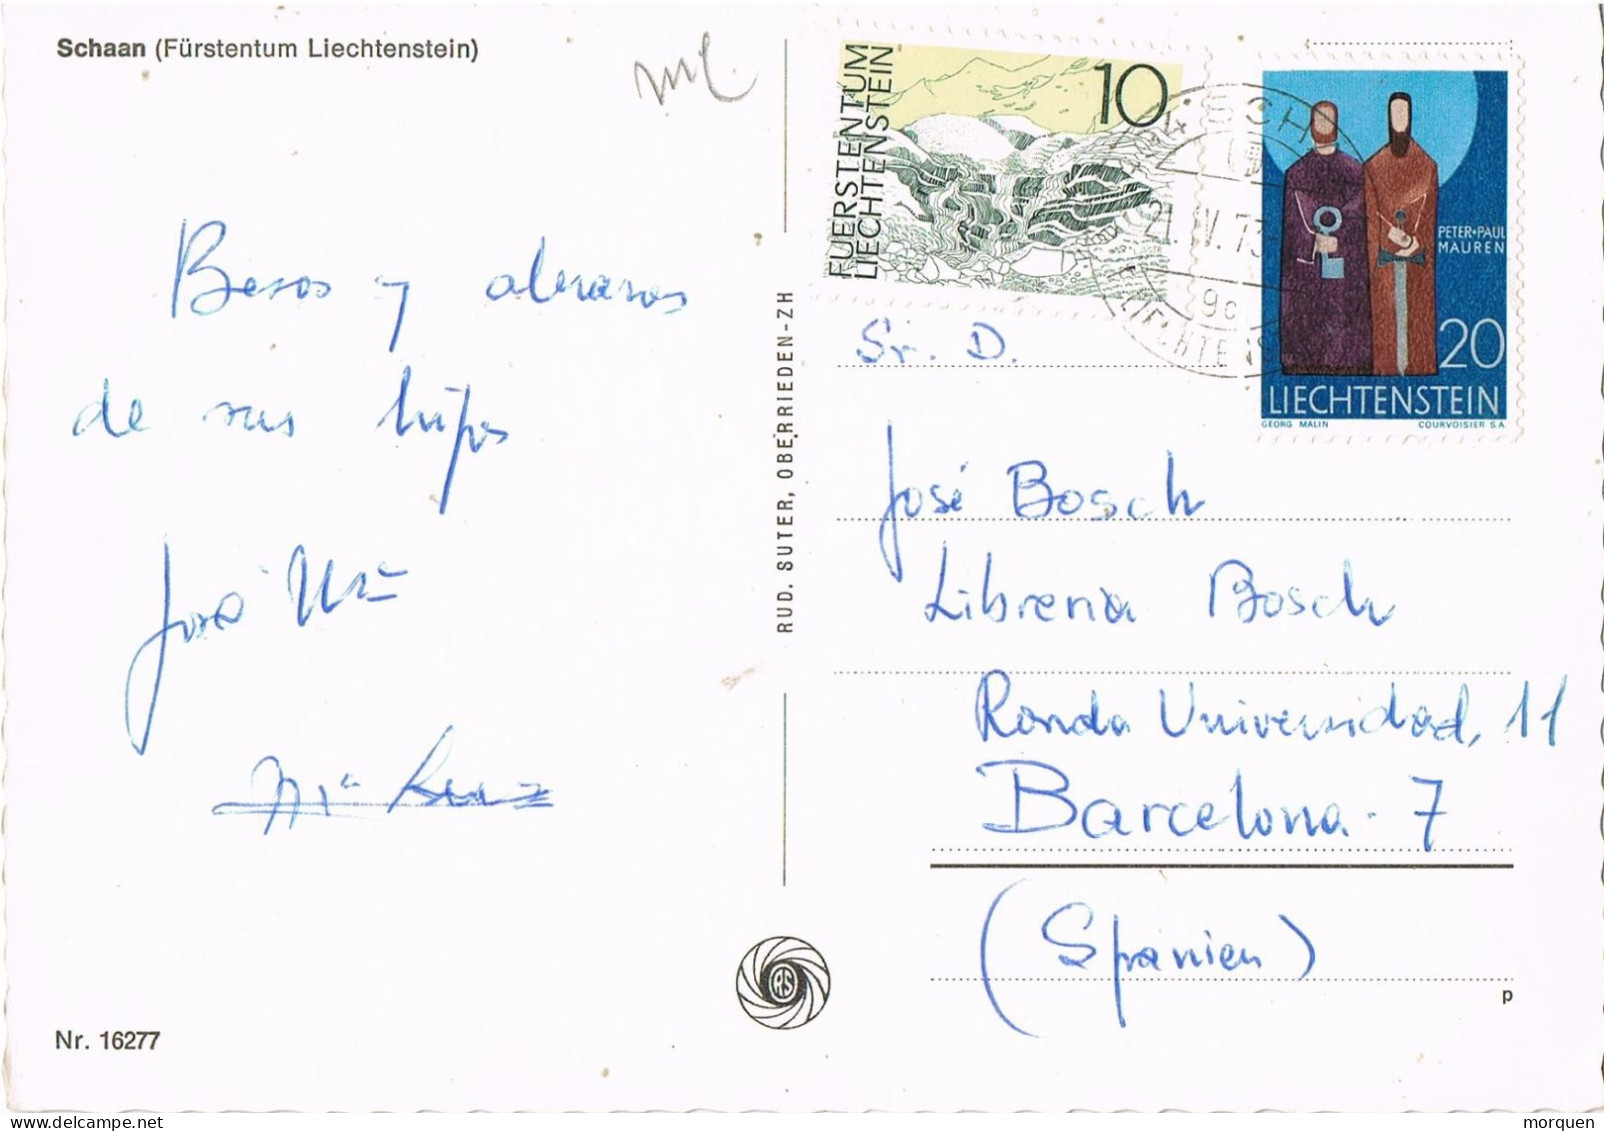 Schaan (Fürstentum Liechtenstein)
Besos y abrazos
de sus hijos
José Mª
Mª Luz
Nr. 16277
RUD. SUTER, OBERRIEDEN-ZH
RS
FUERSTENTUM
LIECHTENSTEIN
10
21. IV. 73
9c
LIECHTENS
PETER+PAUL
MAUREN
20
LIECHTENSTEIN
GEORG MALIN COURVOISIER S.A.
Sr. D.
José Bosch
Libreria Bosch
Ronda Universidad, 11
Barcelona - 7
(Spanien)
p
morquen